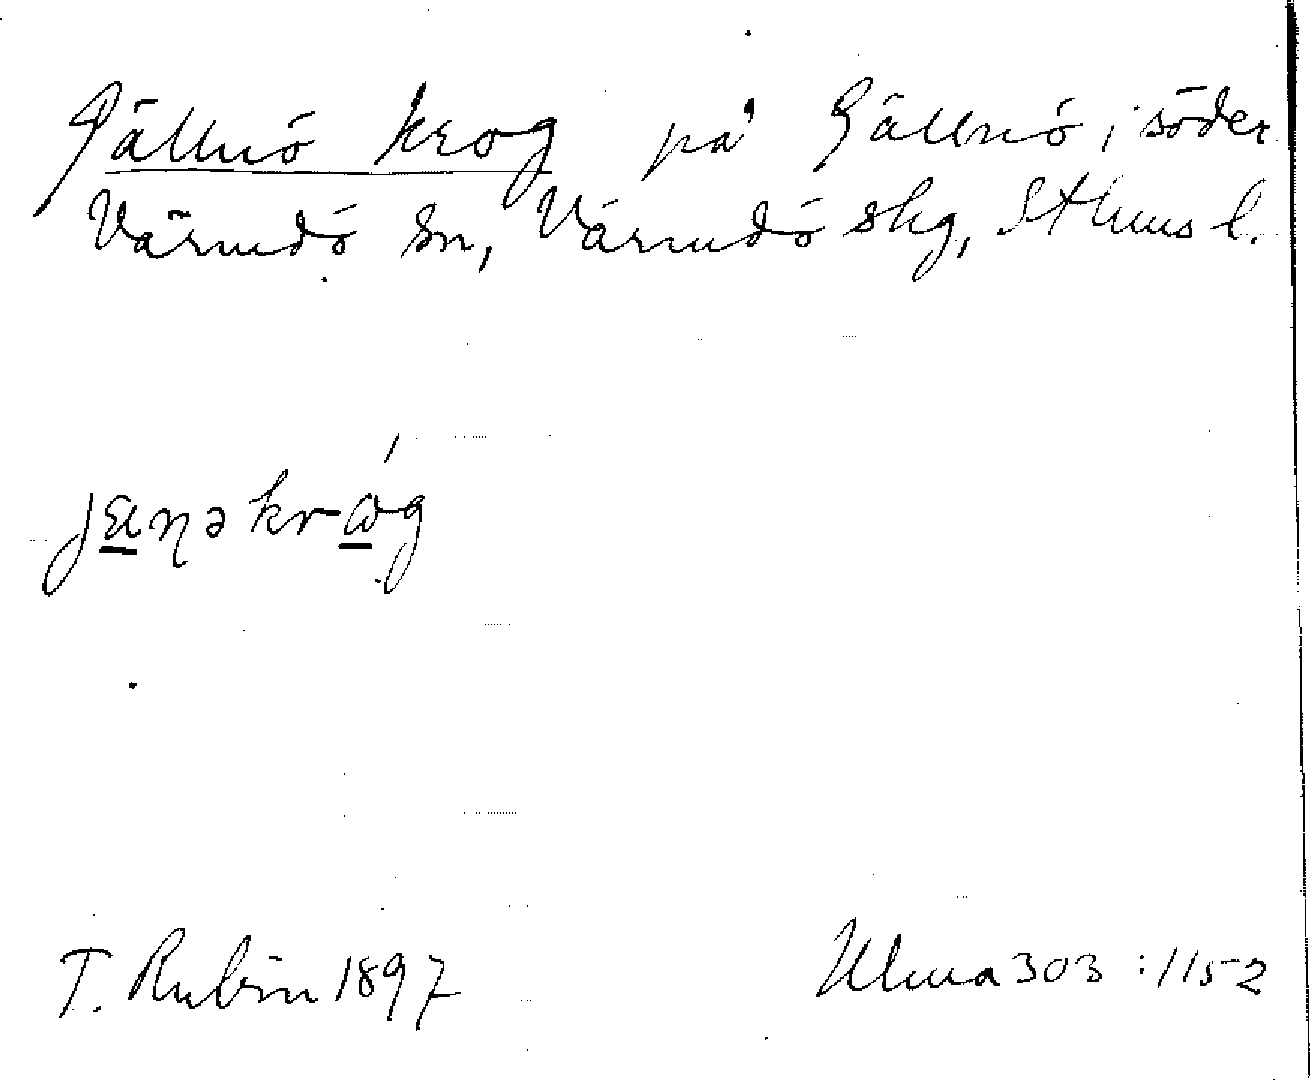 Gällnö krog på Gällnö i söder
Värmdö sn, Värmdö skg, Sthms l.
jænəkróg
T. Rubin 1897
Ulma 303:1152